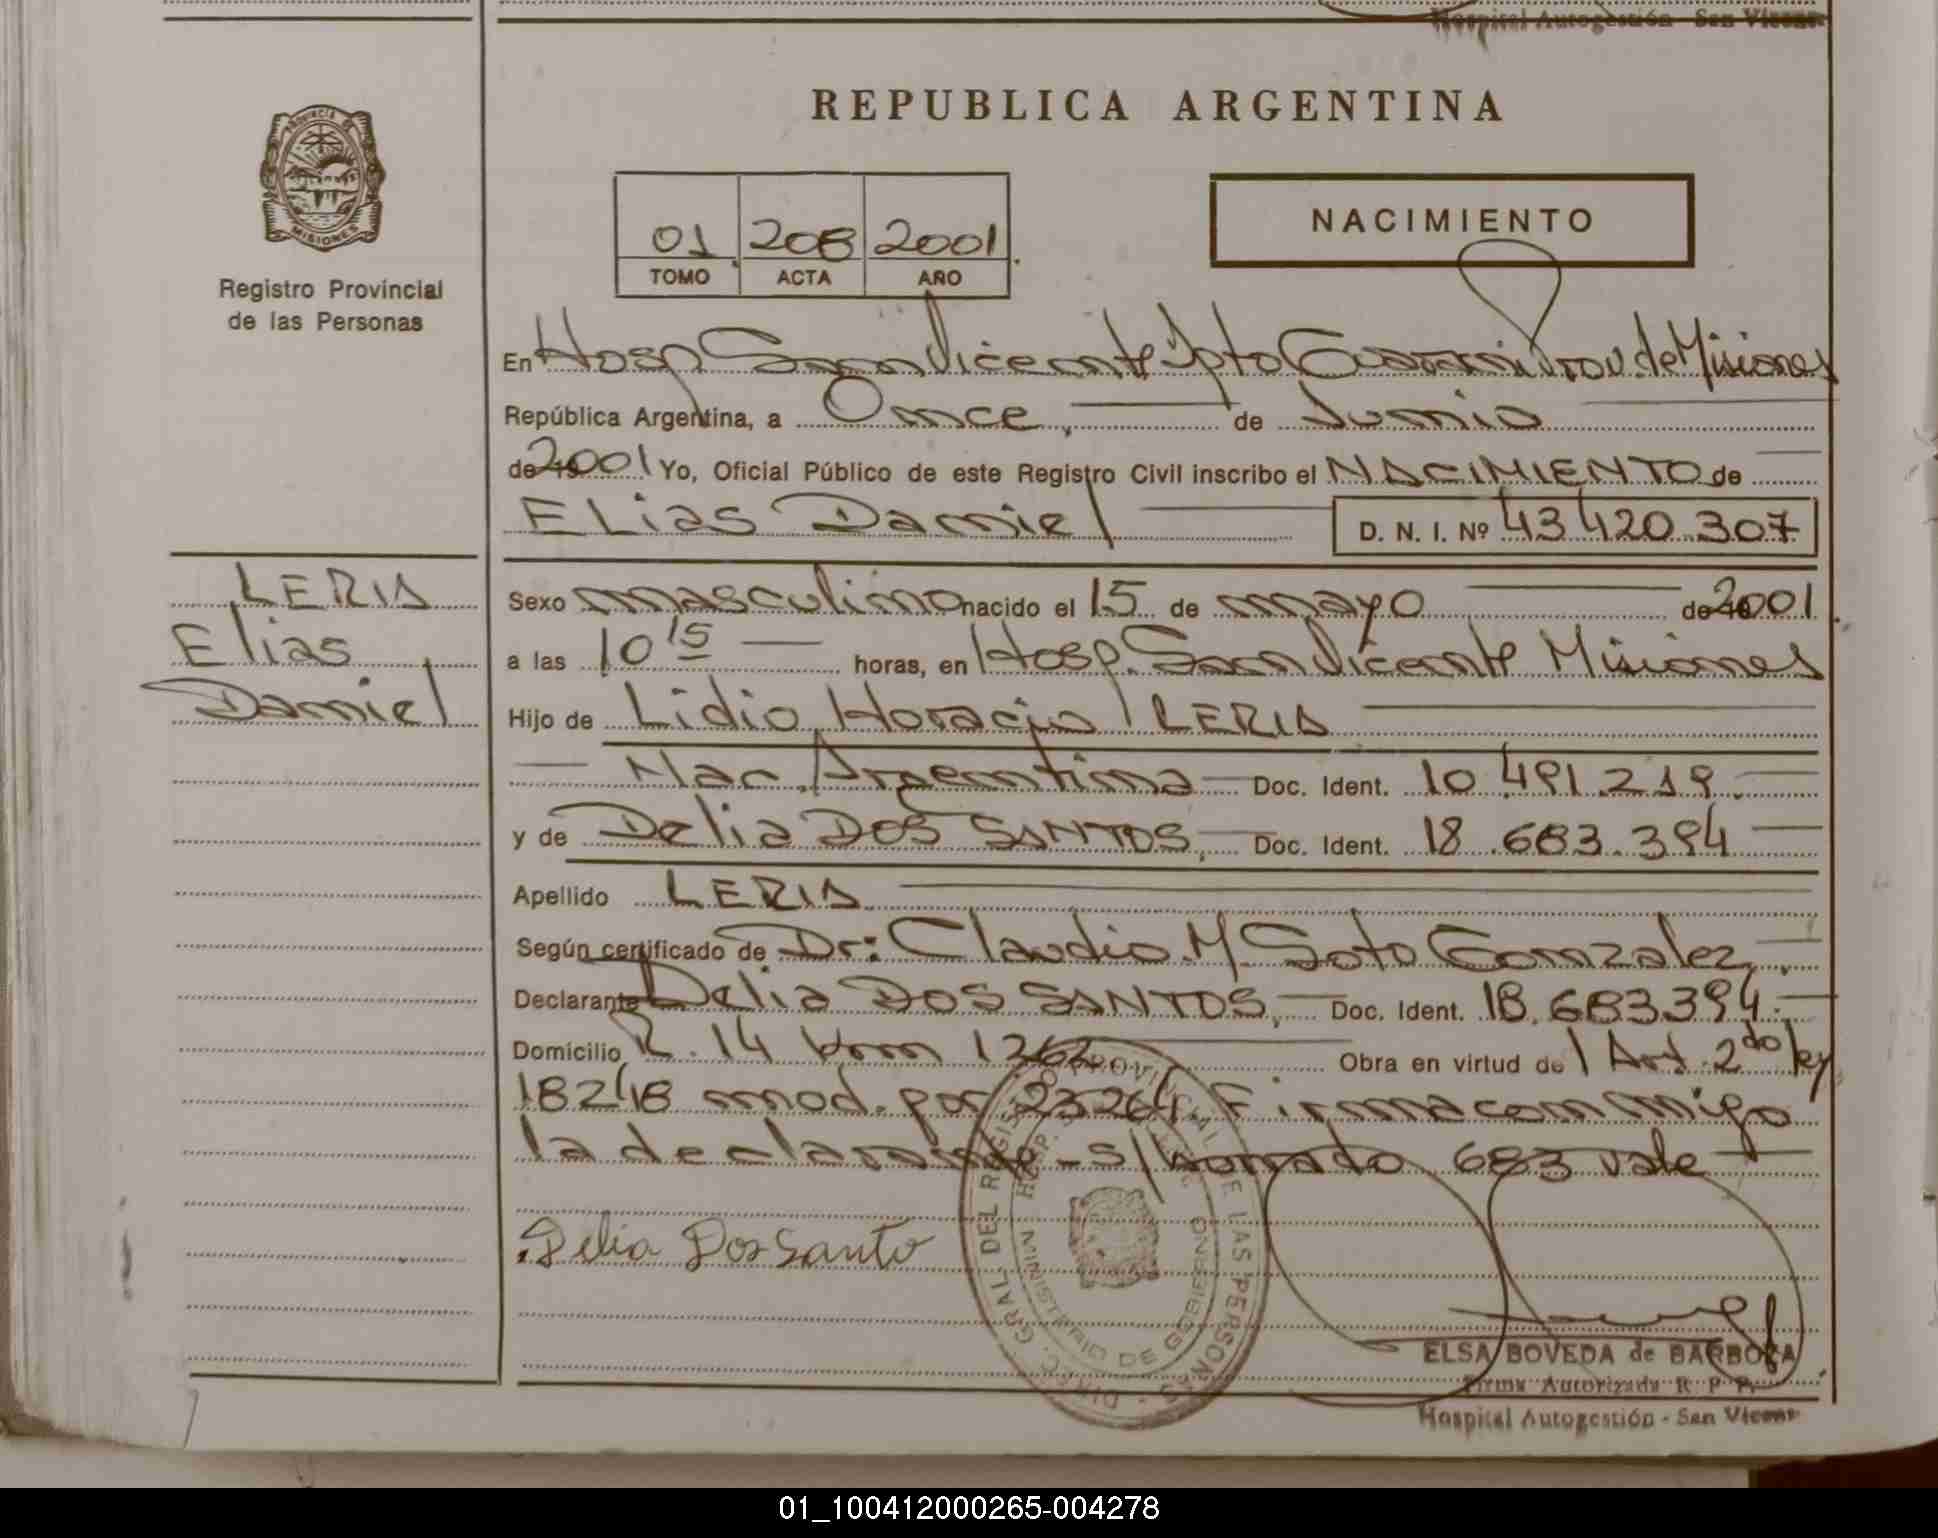 Hospital Autogestión San Vicente
REPUBLICA ARGENTINA
PROVINCIA DE
MISIONES
Registro Provincial
de las Personas
01 208 2001
TOMO ACTA AÑO
NACIMIENTO
En Hosp San Vicente Dpto Guarani Prov. de Misiones
República Argentina, a Once, de Junio
de 2001 Yo, Oficial Público de este Registro Civil inscribo el NACIMIENTO de
ELias Daniel D. N. I. Nº 43 420.307
LERIA
Elias
Daniel
Sexo masculino nacido el 15 de mayo de 2001
a las 10 15 horas, en Hosp. San Vicente Misiones
Hijo de Lidio Horacio LERIA
Nac. Argentina Doc. Ident. 10.491.219.
y de Delia DOS SANTOS, Doc. Ident. 18.683.394
Apellido LERIA
Según certificado de Dr: Claudio M. Soto Gonzalez
Declarante Delia DOS SANTOS, Doc. Ident. 18.683.394.
Domicilio R. 14 km 1262 Obra en virtud de l Art. 2do ley
18248 mod. por 23264. Firma conmigo
la declarante - s/borrado 683 vale
Delia Dos Santo
DIREC. GRAL DEL REGISTRO PROVINCIAL DE LAS PERSONAS
HOSP.
MINISTERIO DE GOBIERNO
ELSA BOVEDA de BARBOZA
Firma Autorizada R. P. P.
Hospital Autogestión - San Vicente
01_100412000265-004278